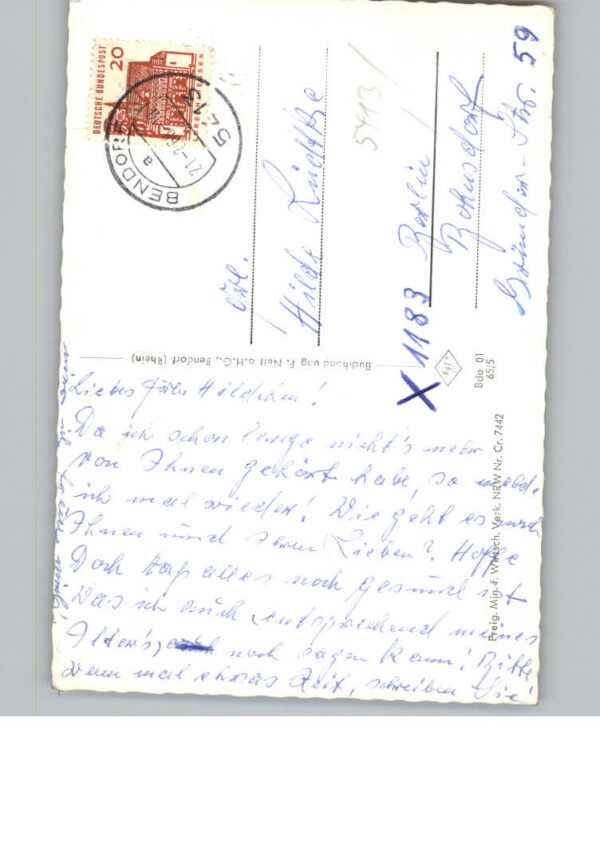 DEUTSCHE BUNDESPOST
20
BENDORF
a
21.-2.6
5413
Hilde
X 1183 Berlin
Bohnsdorf
Str. 59
Buchhandlung F. Nett o.H.G., Bendorf (Rhein)
Bdo 01
65/5
Freig. Min. f. Wirtsch. Verk. NRW Nr. Cr. 7442
Liebes Hildchen!
Da ich schon lange nicht's mehr
von Ihnen gehört habe, so melde
ich mal wieder! Wie geht es
Ihnen und Ihren Lieben? Hoffe
Doch daß alles noch gesund ist
Das ich auch entsprechend meines
Alter's noch sagen kann! Bitte
wenn mal etwas Zeit, schreiben Sie